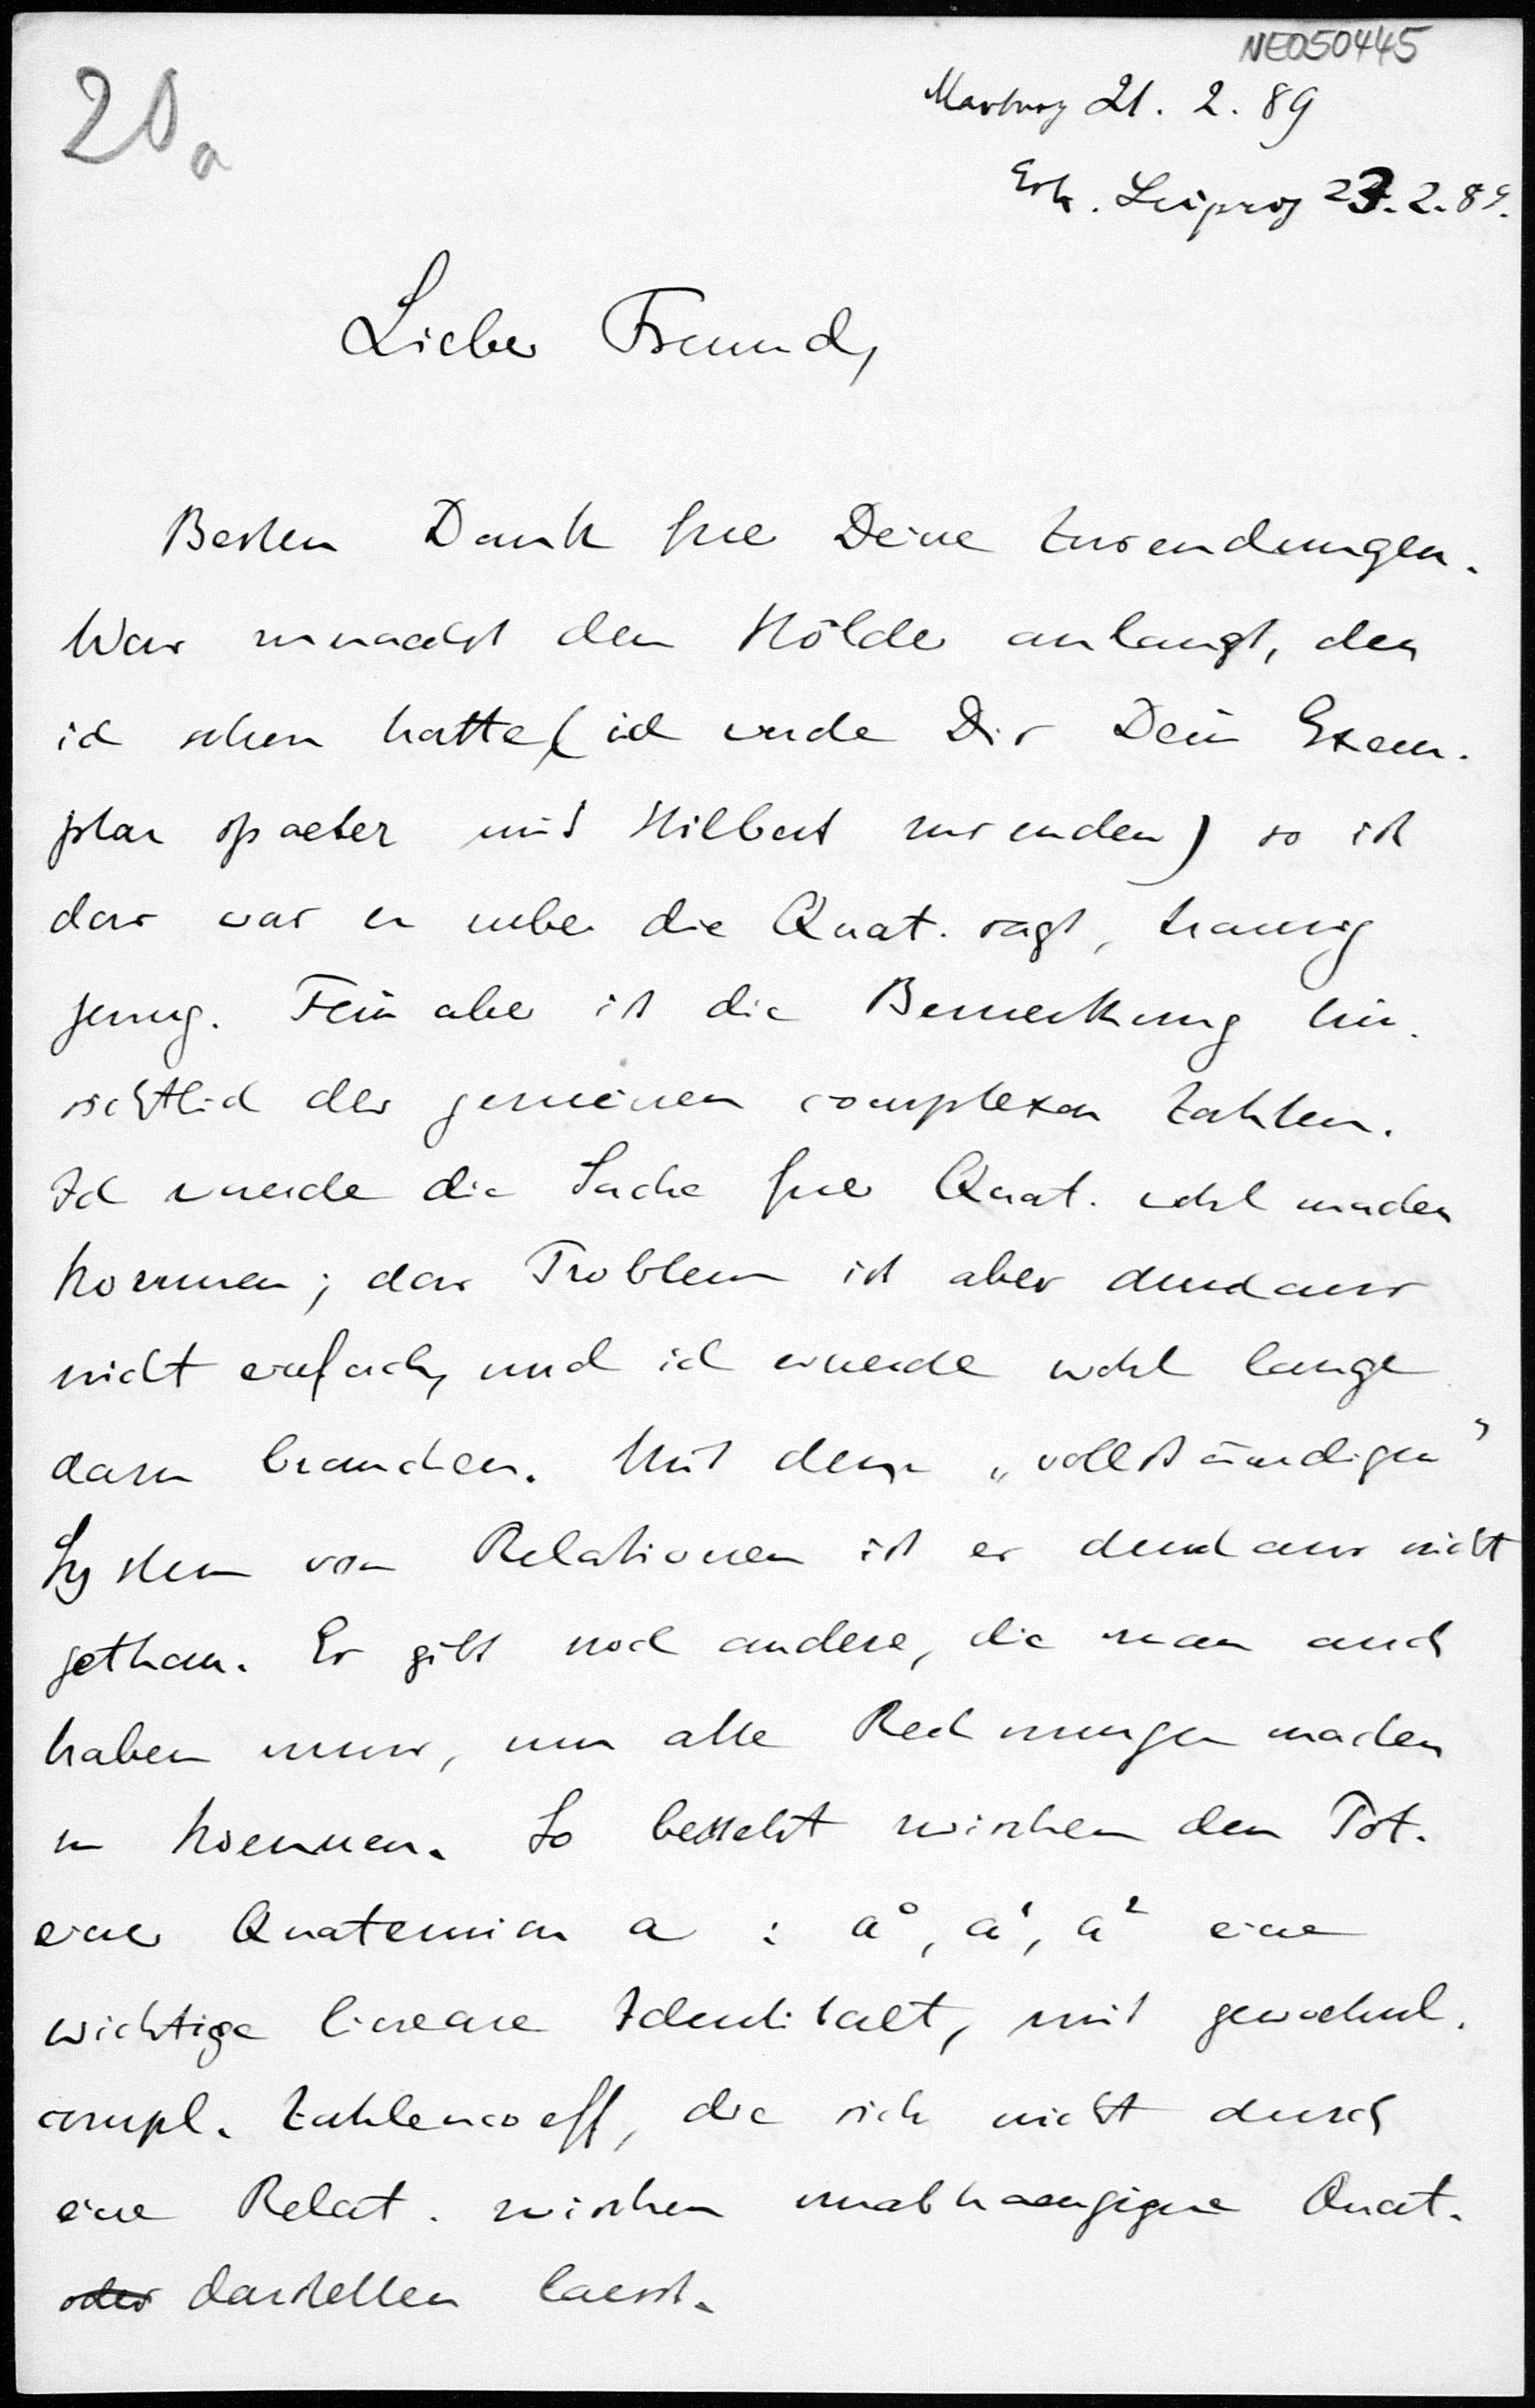 NE050445
20a
Marburg 21. 2. 89
Erh. Leipzig 23. 2. 89.
Lieber Freund,
Besten Dank fuer Deine Zusendungen.
Was zunaechst den Hölder anlangt, den
ich schon hatte (ich werde Dir Dein Exem-
plar spaeter mit Hilbert zusenden) so ist
das was er ueber die Quat. sagt, traurig
genug. Fein aber ist die Bemerkung hin-
sichtlich der gemeinen complexen Zahlen.
Ich wuerde die Sache fuer Quat. wohl machen
koennen; das Problem ist aber durchaus
nicht einfach, und ich wuerde wohl lange
dazu brauchen. Mit dem „vollständigen"
System von Relationen ist es durchaus nicht
gethan. Es gibt noch andere, die man auch
haben muss, um alle Rechnungen machen
zu koennen. So besteht zwischen den Pot.
einer Quaternion a : a⁰, a¹, a² eine
wichtige lineare Identitaet, mit gewoehnl.
compl. Zahlencoeff, die sich nicht durch
eine Relat. zwischen unabhaengigen Quat.
oder darstellen laesst.